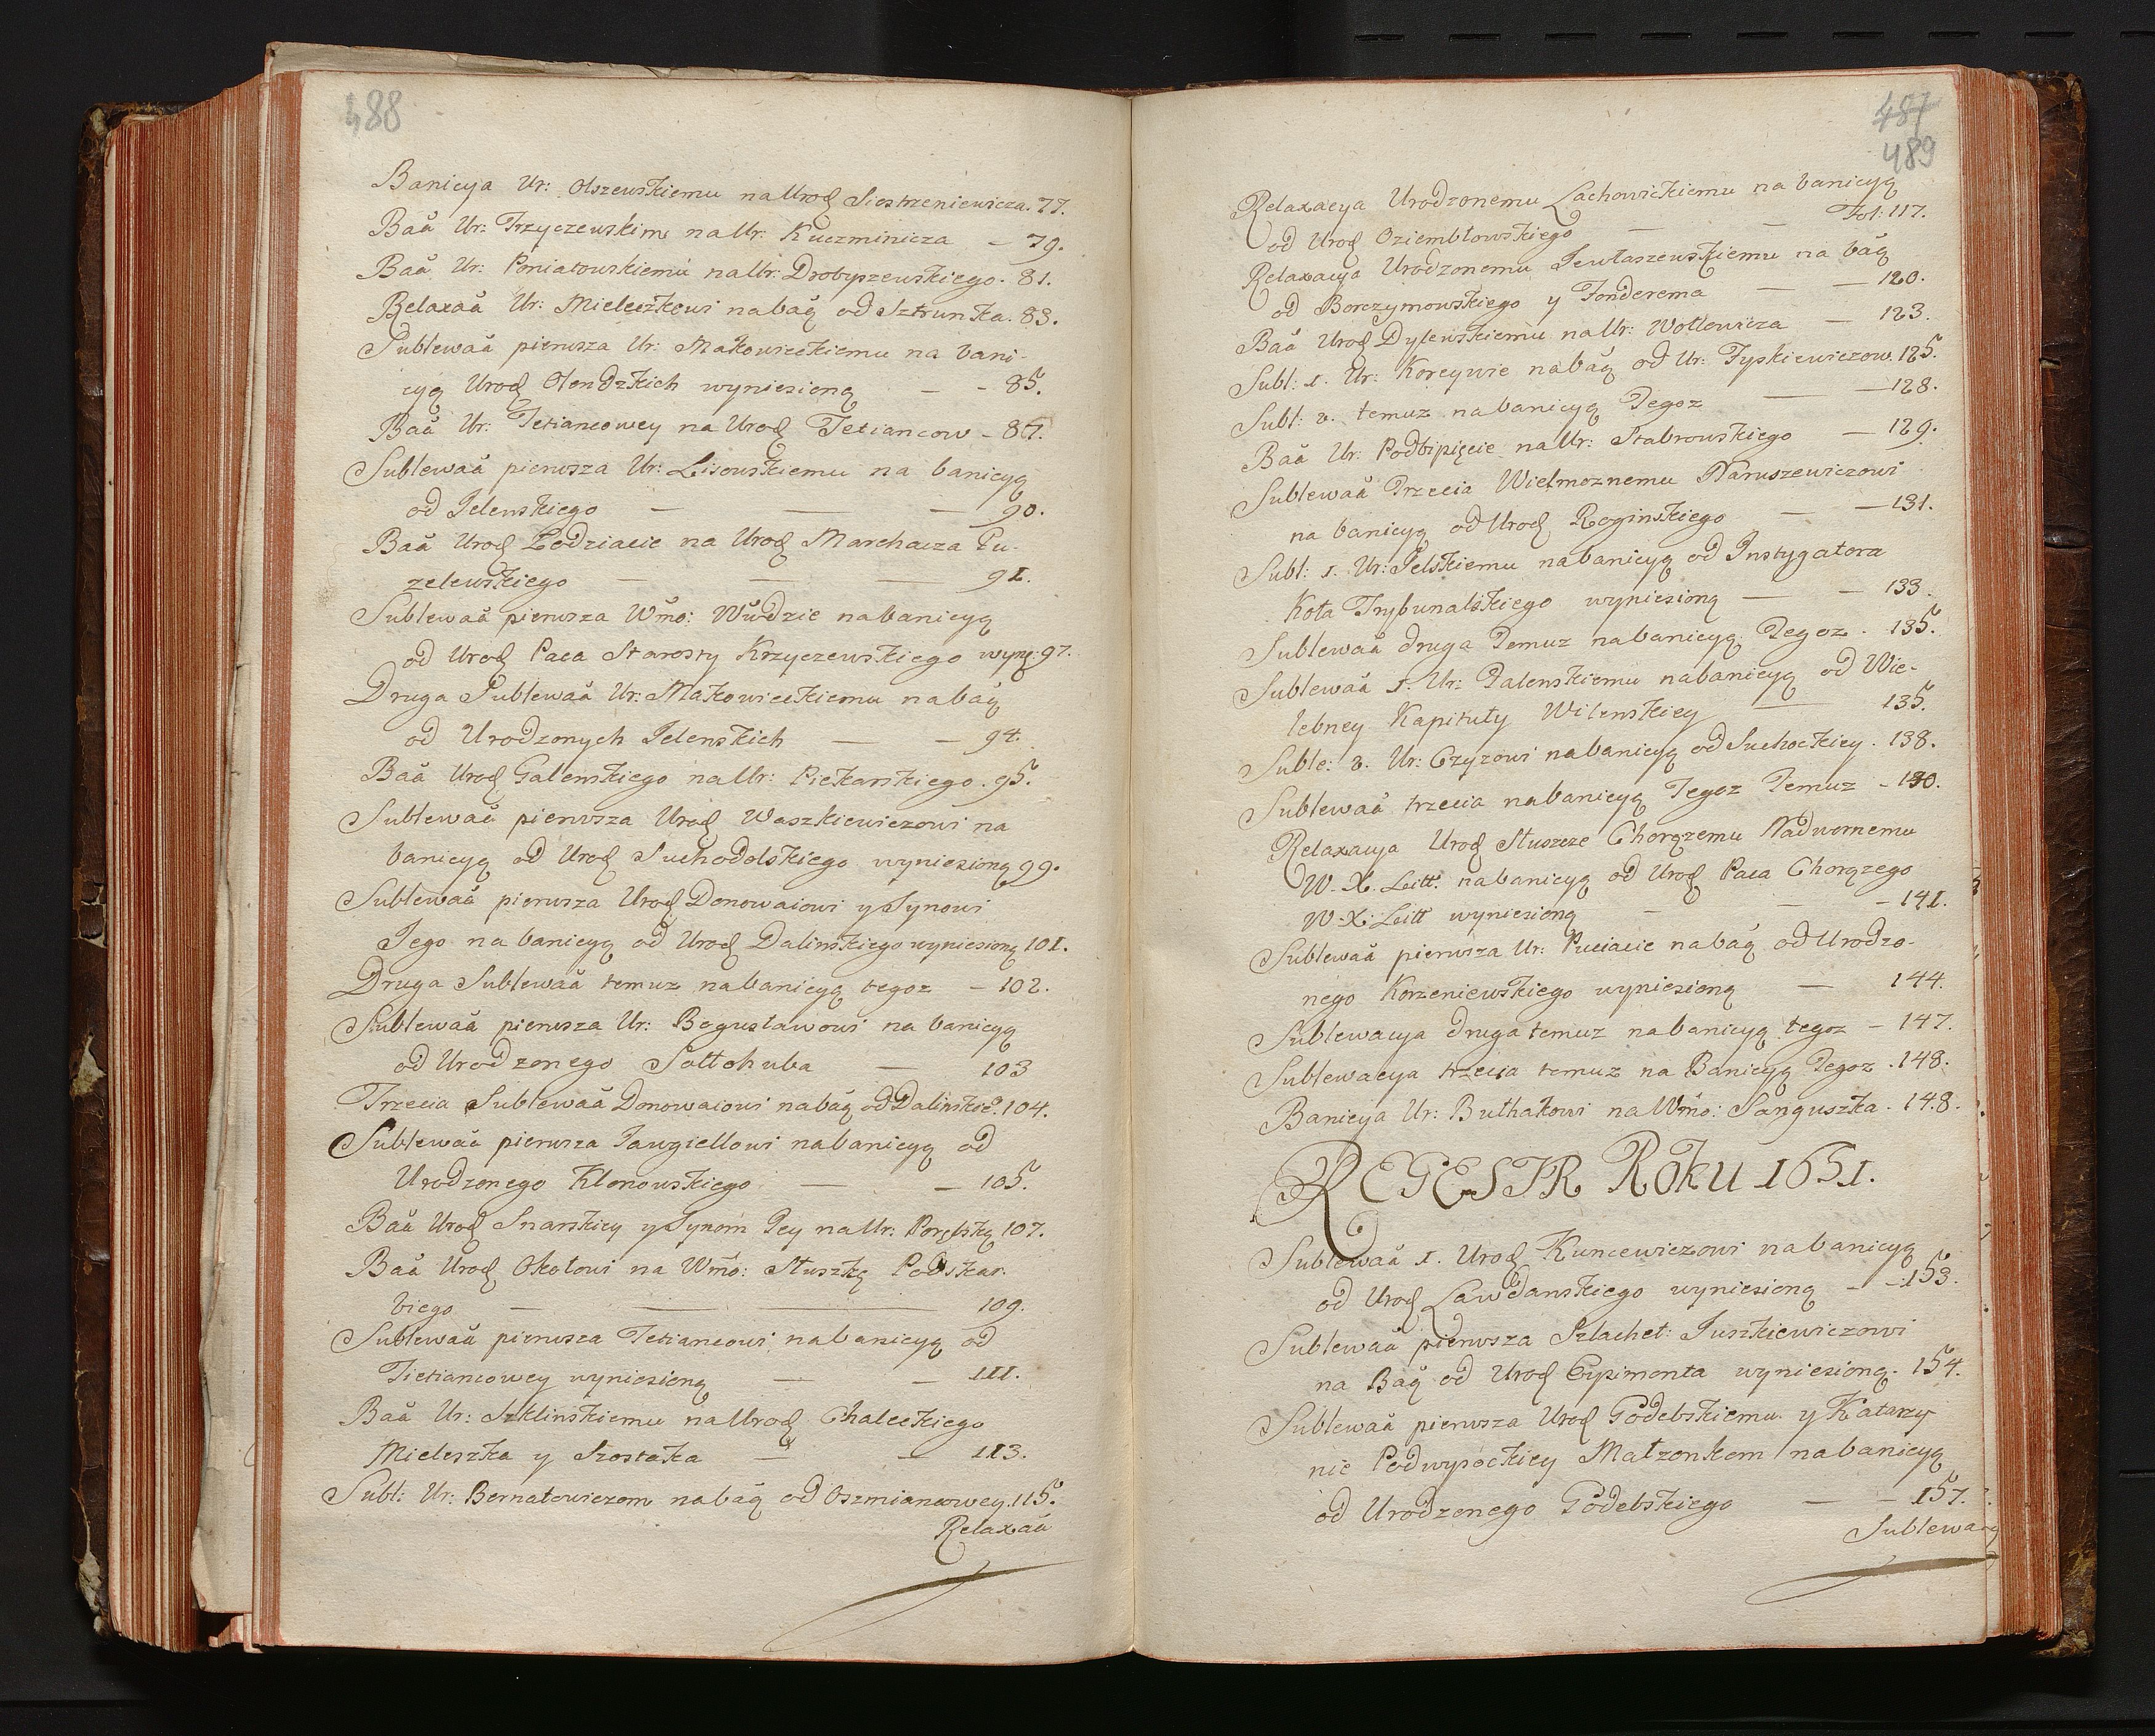 488
Banicya Ur: Olszewskiemu na Urod Siestrzeniewicza. 77.
Baa Ur: Trzyczewskim na Ur: Kuczminicza – 79.
Baa Ur: Poniatowskiemu na Ur: Drobyszewskiego. 81.
Relaxaa Ur: Mieleszkowi na baą od Sztrunka. 83.
Sublewaa pierwsza Ur: Makowieckiemu na bani-
cyą Urod Olendzkich wyniesioną – – 85.
Baa Ur: Tetiancowey na Urod Tetiancow – 87.
Sublewaa pierwsza Ur: Lisowskiemu na banicyą
od Jelenskiego — — — 90.
Baa Urod Lodziacie na Urod Marchacza Pu-
zelewskiego — — 91.
Sublewaa pierwsza Wmo: Wudzie na banicyą
od Urod Paca Starosty Krzyczewskiego wynę. 97.
Druga Sublewaa Ur: Makowieckiemu na baą
od Urodzonych Jelenskich — — 94.
Baa Urod Galenskiego na Ur: Piekarskiego. 95.
Sublewaa pierwsza Urod Waszkiewiczowi na
banicyą od Urod Suchodolskiego wyniesioną 99.
Sublewaa pierwsza Urod Donowaiowi y Synowi
Jego na banicyą od Urod Dalinskiego wyniesioną 101.
Druga Sublewaa temuz na banicyą tegoz – 102.
Sublewaa pierwsza Ur: Bogusławowi na banicyą
od Urodzonego Sołłohuba — 103
Trzecia Sublewaa Donowaiowi na baą od Dalinskieo. 104.
Sublewaa pierwsza Jawgiellowi na banicyą od
Urodzonego Klonowskiego — — 105.
Baa Urod Snarskiey y Synom Jey na Ur: Porębską 107.
Baa Urod Okołowi na Wmo: Słuszkę Podskar-
biego — — 109.
Sublewaa pierwsza Tetiancowi na banicyą od
Tietiancowey wyniesioną — — 111.
Baa Ur: Szklinskiemu na Urod Chaleckiego
Mieleszka y Szostaka — — 113.
Subl: Ur: Bernatowiczom na baą od Oszmiancowey. 115.
Relaxaa
487
489
Relaxacya Urodzonemu Lachowickiemu na banicyą
od Urod Oziembłowskiego — — Fol: 117.
Relaxacya Urodzonemu Jewłaszewskiemu na baą
od Borczymowskiego y Fonderema — — 120.
Baa Urod Dylewskiemu na Ur: Wołlewicza — 123.
Subl: 1. Ur: Koreywie na baą od Ur: Tyskiewiczow. 125.
Subl: 2. temuz na banicyą Tegoz — — 128.
Baa Ur: Podbipięcie na Ur: Stabrowskiego — 129.
Sublewaa Trzecia Wielmoznemu Naruszewiczowi
na banicyą od Urod Roginskiego — — 131.
Subl: 1. Ur: Pelskiemu na banicyą od Instygatora
Koła Trybunalskiego wyniesioną — — 133.
Sublewaa druga Temuz na banicyą Tegoz. 135.
Sublewaa 1. Ur: Palenskiemu na banicyą od Wie-
lebney Kapituły Wilenskiey — 135.
Suble: 2. Ur: Czyzowi na banicyą od Suchockiey. 138.
Sublewaa trzecia na banicyą Tegoz Temuz – 130.
Relaxacya Urod Słuszcze Chorązemu Nadwornemu
W. X. Litt: na banicyą od Urod Paca Chorązego
W. X. Litt wyniesioną — — – 141.
Sublewaa pierwsza Ur: Puciacie na baą od Urodzo-
nego Korzeniewskiego wyniesioną — 144.
Sublewacya druga temuz na banicyą tegoz – 147.
Sublewacya trzecia temuz na Banicyą Tegoz. 148.
Banicya Ur: Buthakowi na Wmo: Sanguszka. 148.
REGESTR Roku 1651.
Sublewaa 1. Urod Kuncewiczowi na banicyą
od Urod Lawdanskiego wyniesioną – – 153.
Sublewaa pierwsza Szlachet: Juszkiewiczowi
na Baą od Urod Eypimonta wyniesioną. 154.
Sublewaa pierwsza Urod Godebskiemu y Katarzy-
nie Podwysockiey Małzonkom na banicyą
od Urodzonego Godebskiego — – 157.
Sublewaa